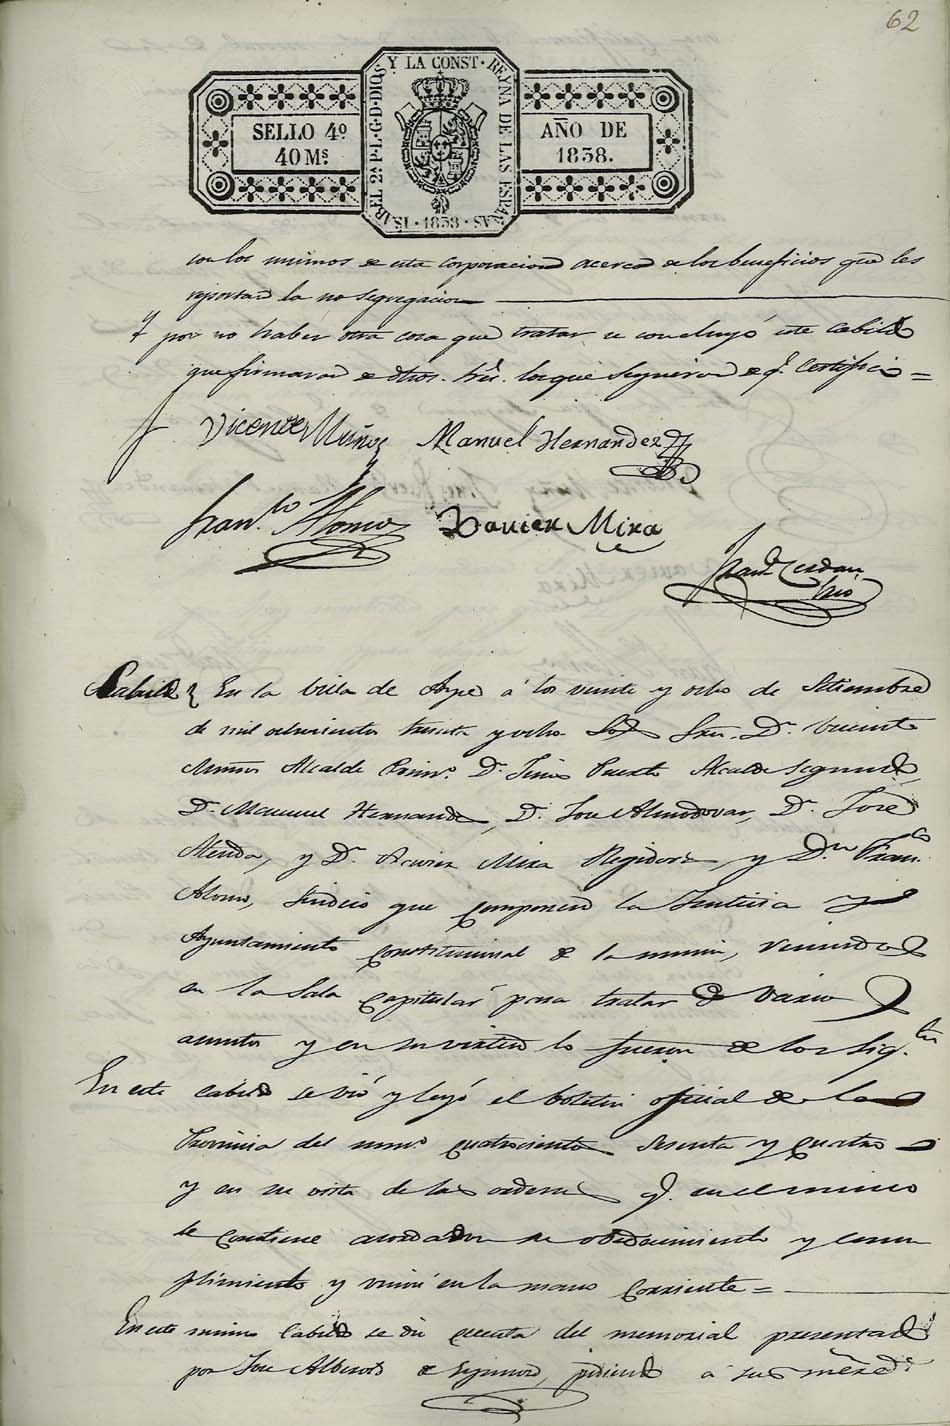 62
SELLO 4º
40 Ms.
ISABEL 2ª P.L.G.D.DIOS Y LA CONST. REYNA DE LAS ESPAÑAS · 1838 ·
AÑO DE
1838.
con los mismos de esta corporacion acerca de los beneficios que les
reportará la no segregacion
Y por no haber otra cosa que tratar se concluyó este Cabildo
que firmaron de dhos. Sres. los que supieron de q. Certifico =
Vicente Muñoz Manuel Hernandez
Franco Alonso Xavier Mira
Franco Cerdan
Srio
Cabildo En la Villa de Aspe á los veinte y ocho de Setiembre
de mil ochocientos treinta y ocho Los Sres. Dn. Vicente
Muñoz Alcalde Primo. Dn. Gines Puerto Alcalde Segundo,
Dn. Manuel Hernandez, Dn. Jose Almodovar, Dn. Jose
Atenda, y Dn. Xavier Mira Regidores, y Dn. Franco
Alonso, Sindico que componen la Justicia y
Ayuntamiento Constitucional de la misma, reunidos
en la Sala Capitular para tratar de varios
asuntos y en su virtud lo fueron de los sigtes
En este Cabildo se vió y leyó el boletin oficial de la
Provincia del numo. cuatrocientos sesenta y cuatro
y en su vista de las ordenes q. en el mismo
se contiene acordaron su obedecimiento y cum
plimiento y unirá en la mano corriente =
En este mismo Cabildo se dió cuenta del memorial presentado
por Jose Alberola de Segundo, pidiendo á sus mercedes